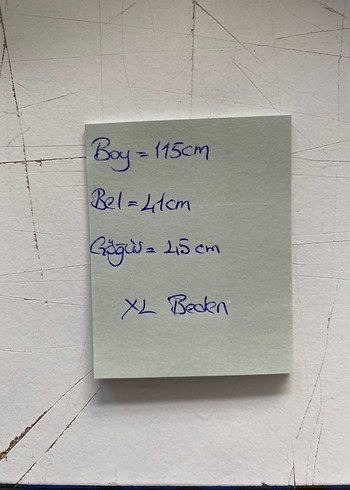 Boy = 115cm
Bel = 41cm
Göğüs = 45cm
XL Beden